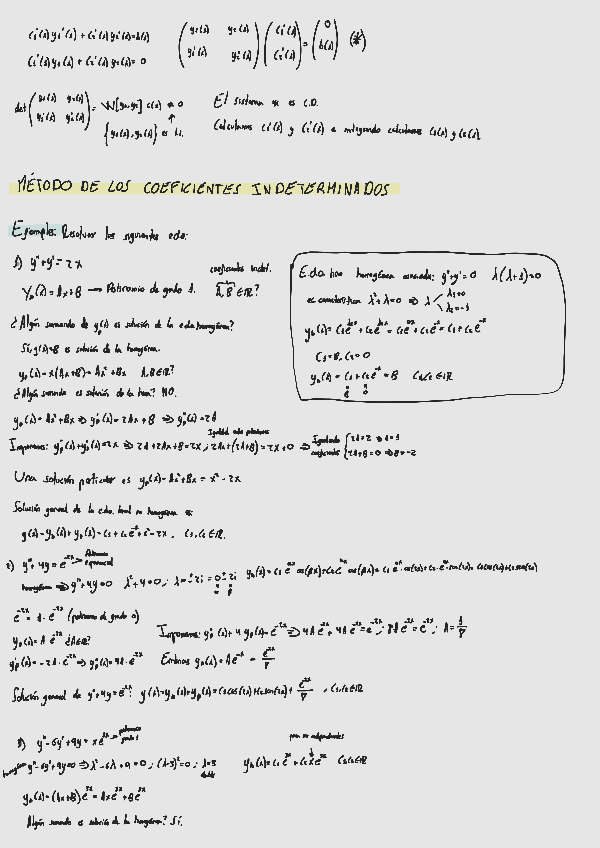 C₁'(x)y₁'(x) + C₂'(x)y₂'(x) = b(x)
C₁'(x)y₁(x) + C₂'(x)y₂(x) = 0
(y₁(x) y₂(x) / y₁'(x) y₂'(x)) (C₁'(x) / C₂'(x)) = (0 / b(x)) (*)
det (y₁(x) y₂(x) / y₁'(x) y₂'(x)) = W[y₁,y₂](x) ≠ 0 El sistema es C.D.
{y₁(x), y₂(x)} es l.i. Calculamos C₁'(x) y C₂'(x) e integrando calculamos C₁(x) y C₂(x)
MÉTODO DE LOS COEFICIENTES INDETERMINADOS
Ejemplo: Resolver las siguientes edo:
1) y'' + y' = 2x
coeficientes indet.
yₚ(x) = Ax + B → Polinomio de grado 1. A, B ∈ ℝ?
¿Algún sumando de yₚ(x) es solución de la edo homogénea?
Sí, y(x) = B es solución de la homogénea.
yₚ(x) = x(Ax+B) = Ax² + Bx A, B ∈ ℝ?
¿Algún sumando es solución de la hom? NO.
Edo lin homogénea asociada: y''+y' = 0 λ(λ+1) = 0
ec característica λ²+λ = 0 ⇒ λ λ₁ = 0 λ₂ = -1
yₕ(x) = C₁e^λ₁x + C₂e^λ₂x = C₁e^0x + C₂e^-x = C₁ + C₂e^-x
C₁ = B, C₂ = 0
yₕ(x) = C₁ + C₂e^-x = B C₁, C₂ ∈ ℝ
B 0
yₚ(x) = Ax² + Bx ⇒ yₚ'(x) = 2Ax + B ⇒ yₚ''(x) = 2A
Igualdad entre polinomios
Imponemos: yₚ''(x) + yₚ'(x) = 2x ⇒ 2A + 2Ax + B = 2x ; 2Ax + (2A+B) = 2x + 0 ⇒ Igualando coeficientes { 2A = 2 ⇒ A = 1
2A + B = 0 ⇒ B = -2
Una solución particular es yₚ(x) = Ax² + Bx = x² - 2x
Solución general de la edo. lineal no homogénea es:
y(x) = yₕ(x) + yₚ(x) = C₁ + C₂e^-x + x² - 2x , C₁, C₂ ∈ ℝ.
2) y'' + 4y = e^-2x → Polinomio exponencial
homogénea ⇒ y'' + 4y = 0 λ² + 4 = 0 ; λ = ±2i = 0 ± 2i yₕ(x) = C₁e^αx cos(βx) + C₂e^αx sen(βx) = C₁e^0x cos(2x) + C₂e^0x sen(2x) = C₁cos(2x) + C₂sen(2x)
α β
e^-2x = 1·e^-2x (polinomio de grado 0)
yₚ(x) = A e^-2x ¿A ∈ ℝ?
yₚ'(x) = -2A·e^-2x ⇒ yₚ''(x) = 4A·e^-2x
Imponemos: yₚ''(x) + 4yₚ(x) = e^-2x ⇒ 4Ae^-2x + 4Ae^-2x = e^-2x ; 8Ae^-2x = e^-2x ; A = 1/8
Entonces yₚ(x) = Ae^-2x = e^-2x/8
Solución general de y'' + 4y = e^-2x : y(x) = yₕ(x) + yₚ(x) = C₁cos(2x) + C₂sen(2x) + e^-2x/8 , C₁, C₂ ∈ ℝ
3) y'' - 6y' + 9y = xe^3x → polinomio grado 1
homogénea y'' - 6y' + 9y = 0 ⇒ λ² - 6λ + 9 = 0 ; (λ-3)² = 0 ; λ = 3 doble
para ser independientes
yₕ(x) = C₁e^3x + C₂xe^3x C₁, C₂ ∈ ℝ
yₚ(x) = (Ax+B)e^3x = Axe^3x + Be^3x
Algún sumando es solución de la homogénea? Sí.